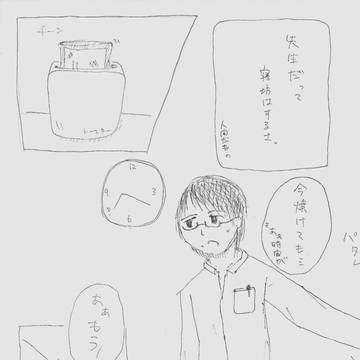 先生だって
寝坊はするさ。
人間だもの
チーン
トースター
12
3
6
9
今焼けてもミ
あぁ時間が
パタン
あぁ
もう